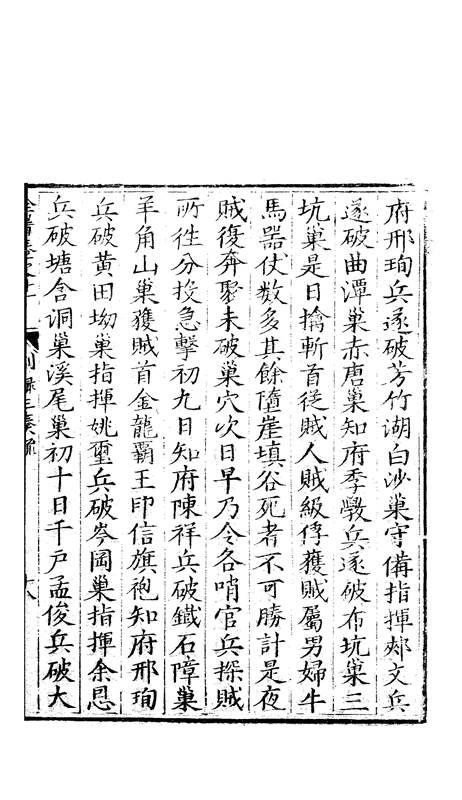 府邢珣兵遂破芳竹湖白沙巢守備指揮郟文兵
遂破曲潭巢赤唐巢知府季斆兵遂破布坑巢三
坑巢是日擒斬首從賊人賊級俘獲賊屬男婦牛
馬器仗數多其餘墮崖填谷死者不可勝計是夜
賊復奔聚未破巢穴次日早乃令各哨官兵探賊
所徃分投急擊初九日知府陳祥兵破鐵石障巢
羊角山巢獲賊首金龍覇王印信旗袍知府邢珣
兵破黄田坳巢指揮姚璽兵破岑岡巢指揮余恩
兵破塘含洞巢溪尾巢初十日千戶孟俊兵破大
別錄三奏疏